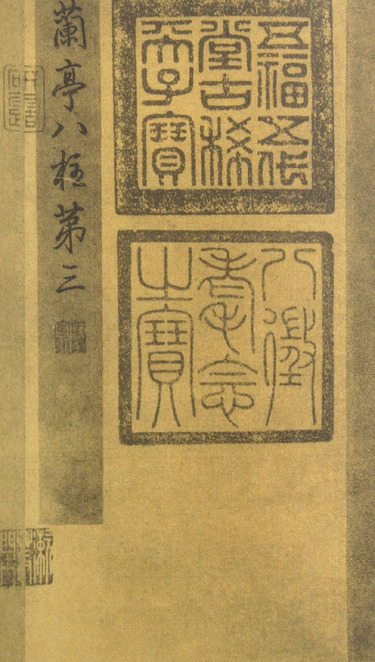 五福五代
堂古稀
天子寶
八徵
耄念
之寶
蘭亭八柱第三